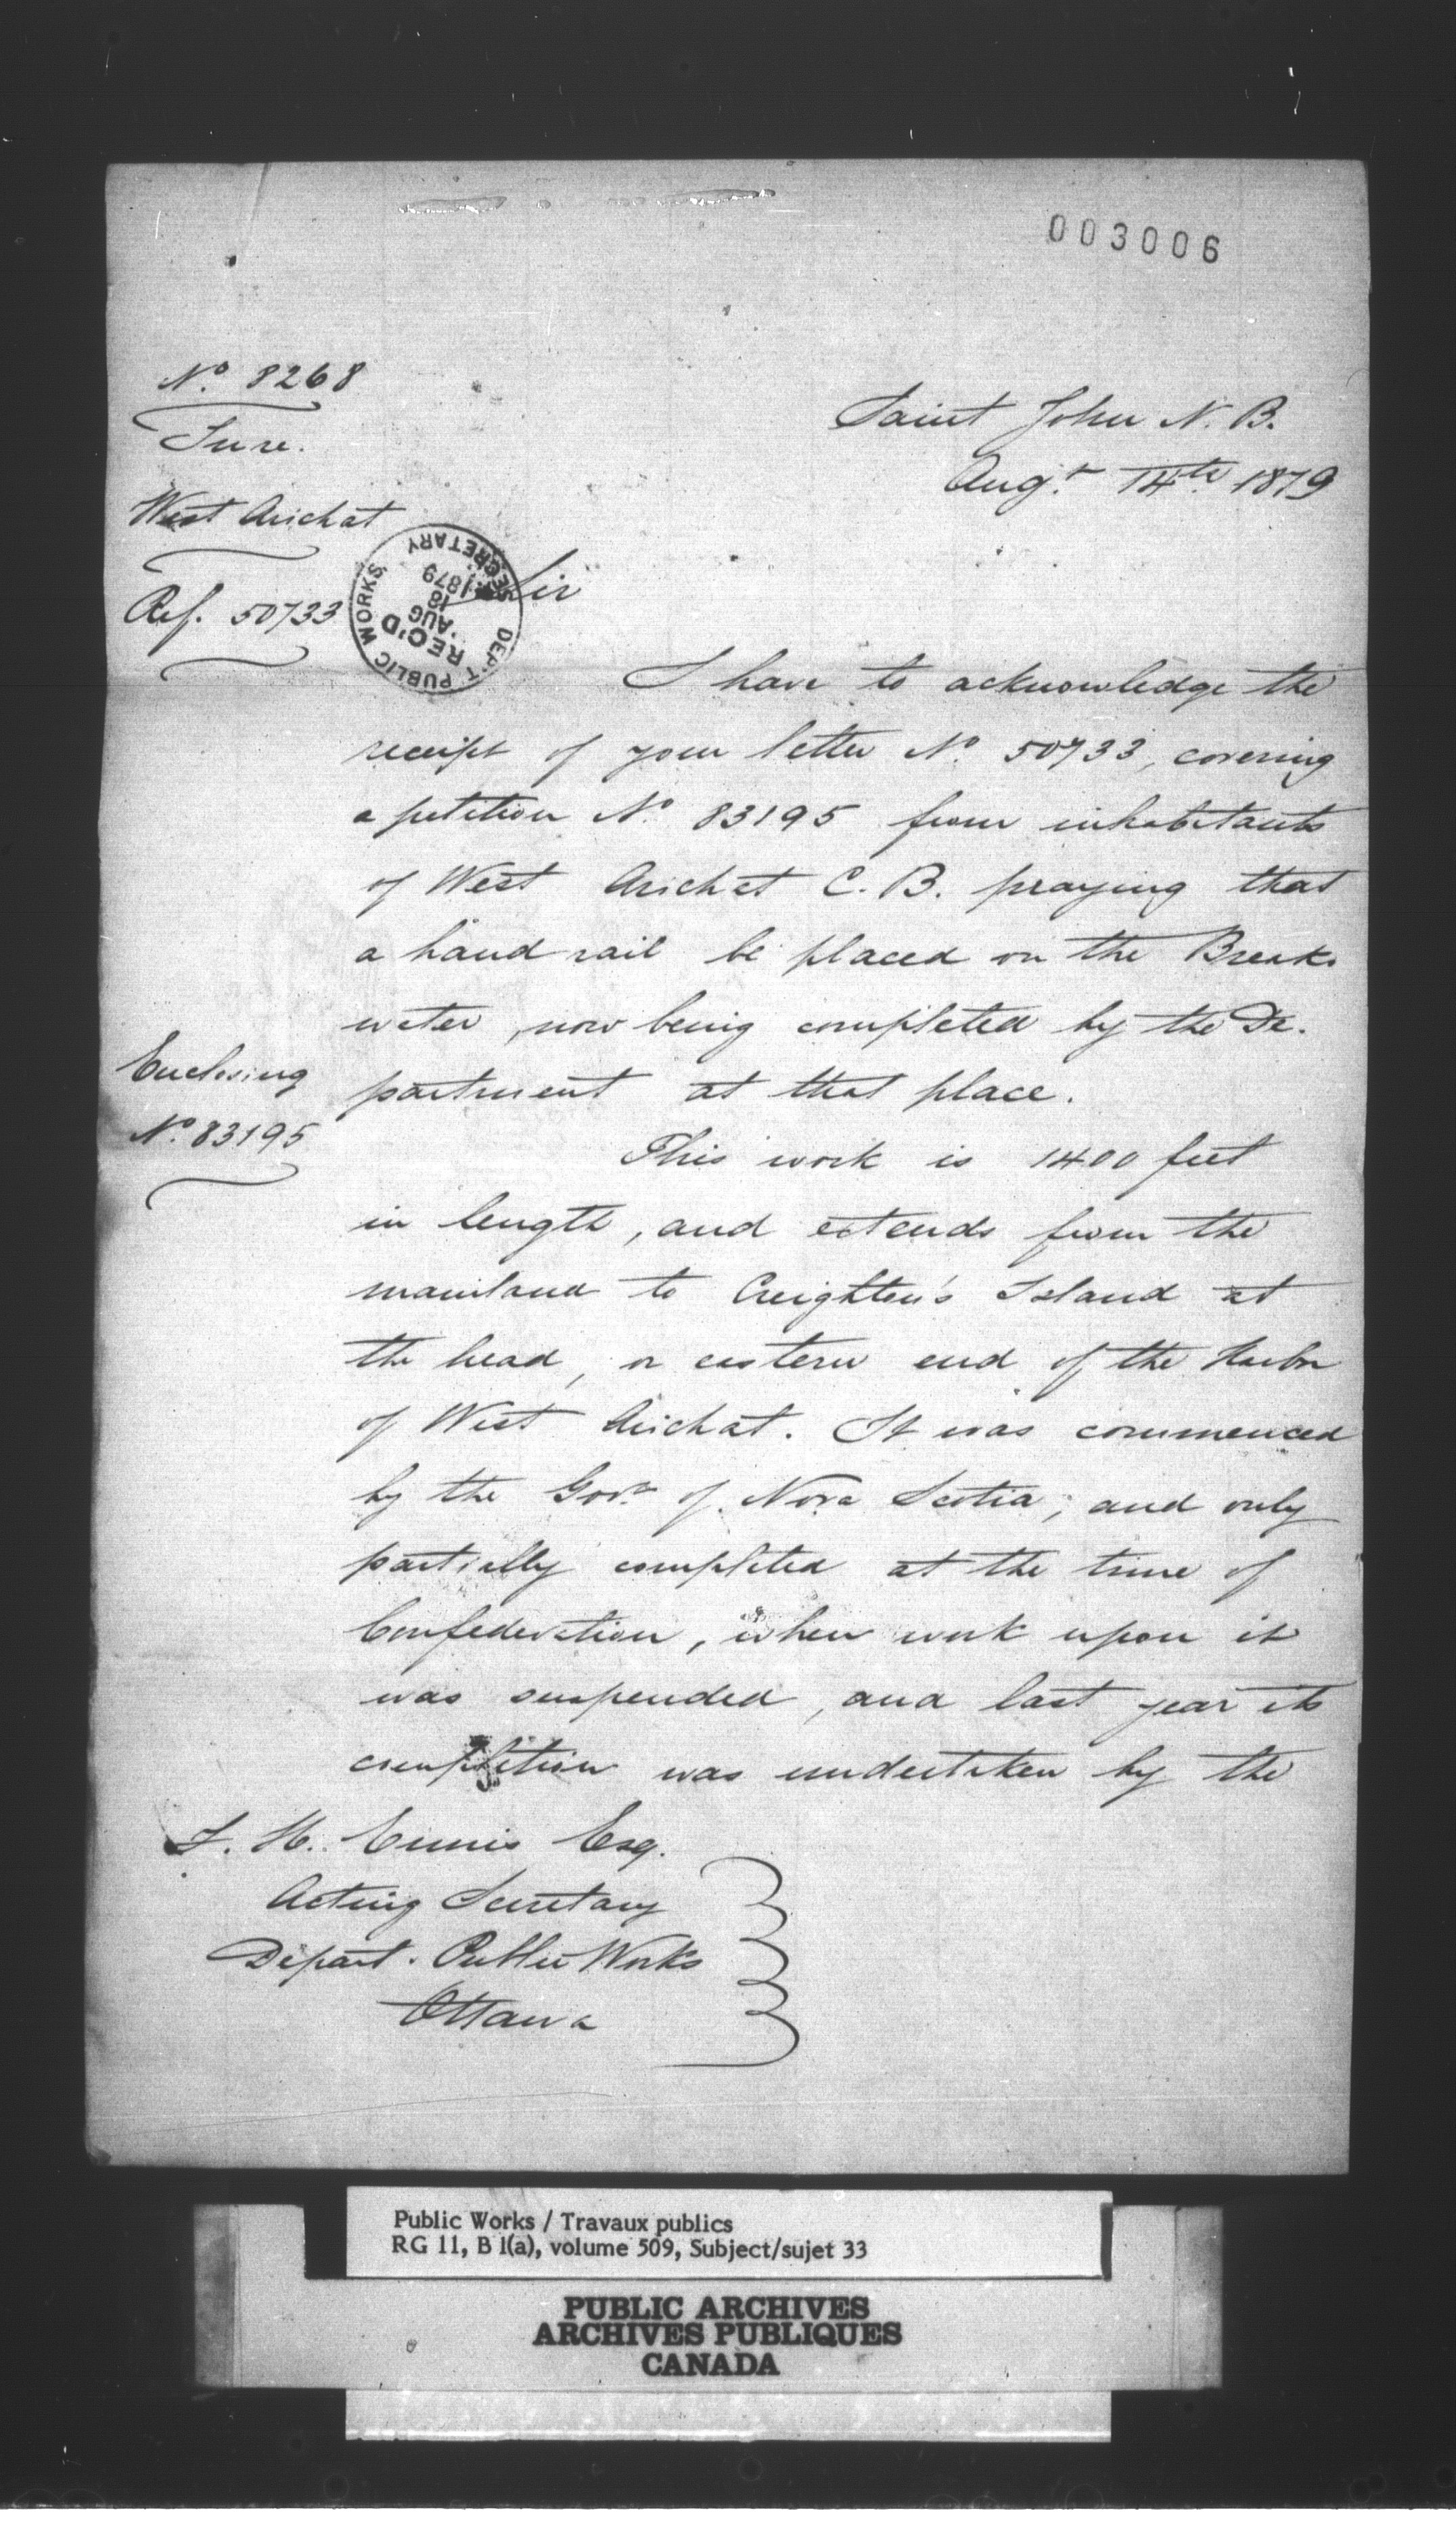 003006
No. 8268
Saint John N. B.
Augt. 14th 1879
West Arichat
Ref. 50733
DEP'T PUBLIC WORKS
REC'D
AUG
18
1879
SECRETARY
Sir
I have to acknowledge the
receipt of your letter No. 50733, covering
a petition No. 83195 from inhabitants
of West Arichat C. B. praying that
a hand rail be placed on the Break-
water, now being completed by the De-
partment at that place.
Enclosing
No. 83195
This work is 1400 feet
in length, and extends from the
mainland to Creighton's Island at
the head, or eastern end of the Harbor
of West Arichat. It was commenced
by the Govt. of Nova Scotia, and only
partially completed at the time of
Confederation, when work upon it
was suspended, and last year its
completion was undertaken by the
H. Ennis Esq.
Acting Secretary
Depart. Public Works
Ottawa
Public Works / Travaux publics
RG 11, B 1(a), volume 509, Subject/sujet 33
PUBLIC ARCHIVES
ARCHIVES PUBLIQUES
CANADA